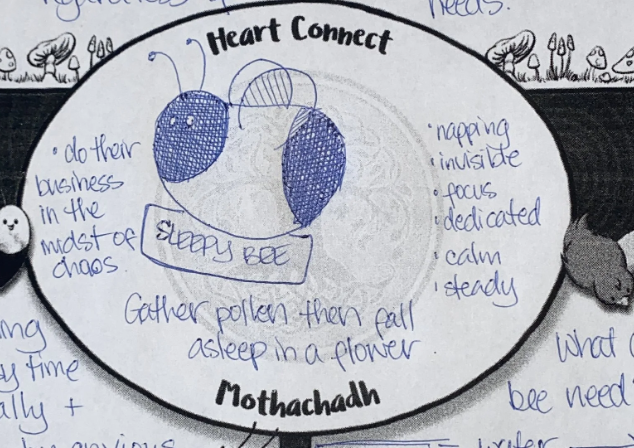 needs.
Heart Connect
• do their
business
in the
midst of
chaos.
SLEEPY BEE
• napping
• invisible
• focus
• dedicated
• calm
• steady
Gather pollen then fall
asleep in a flower.
Mothachadh
time
+
What
bee need